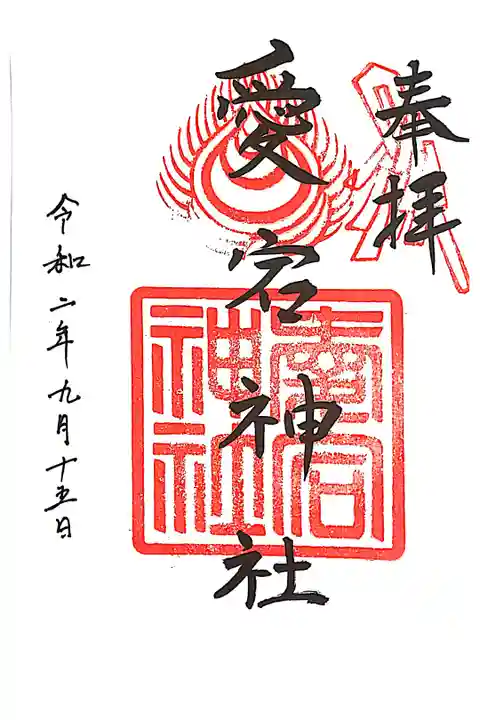 奉拝
愛宕神社
神社
令和二年九月十五日